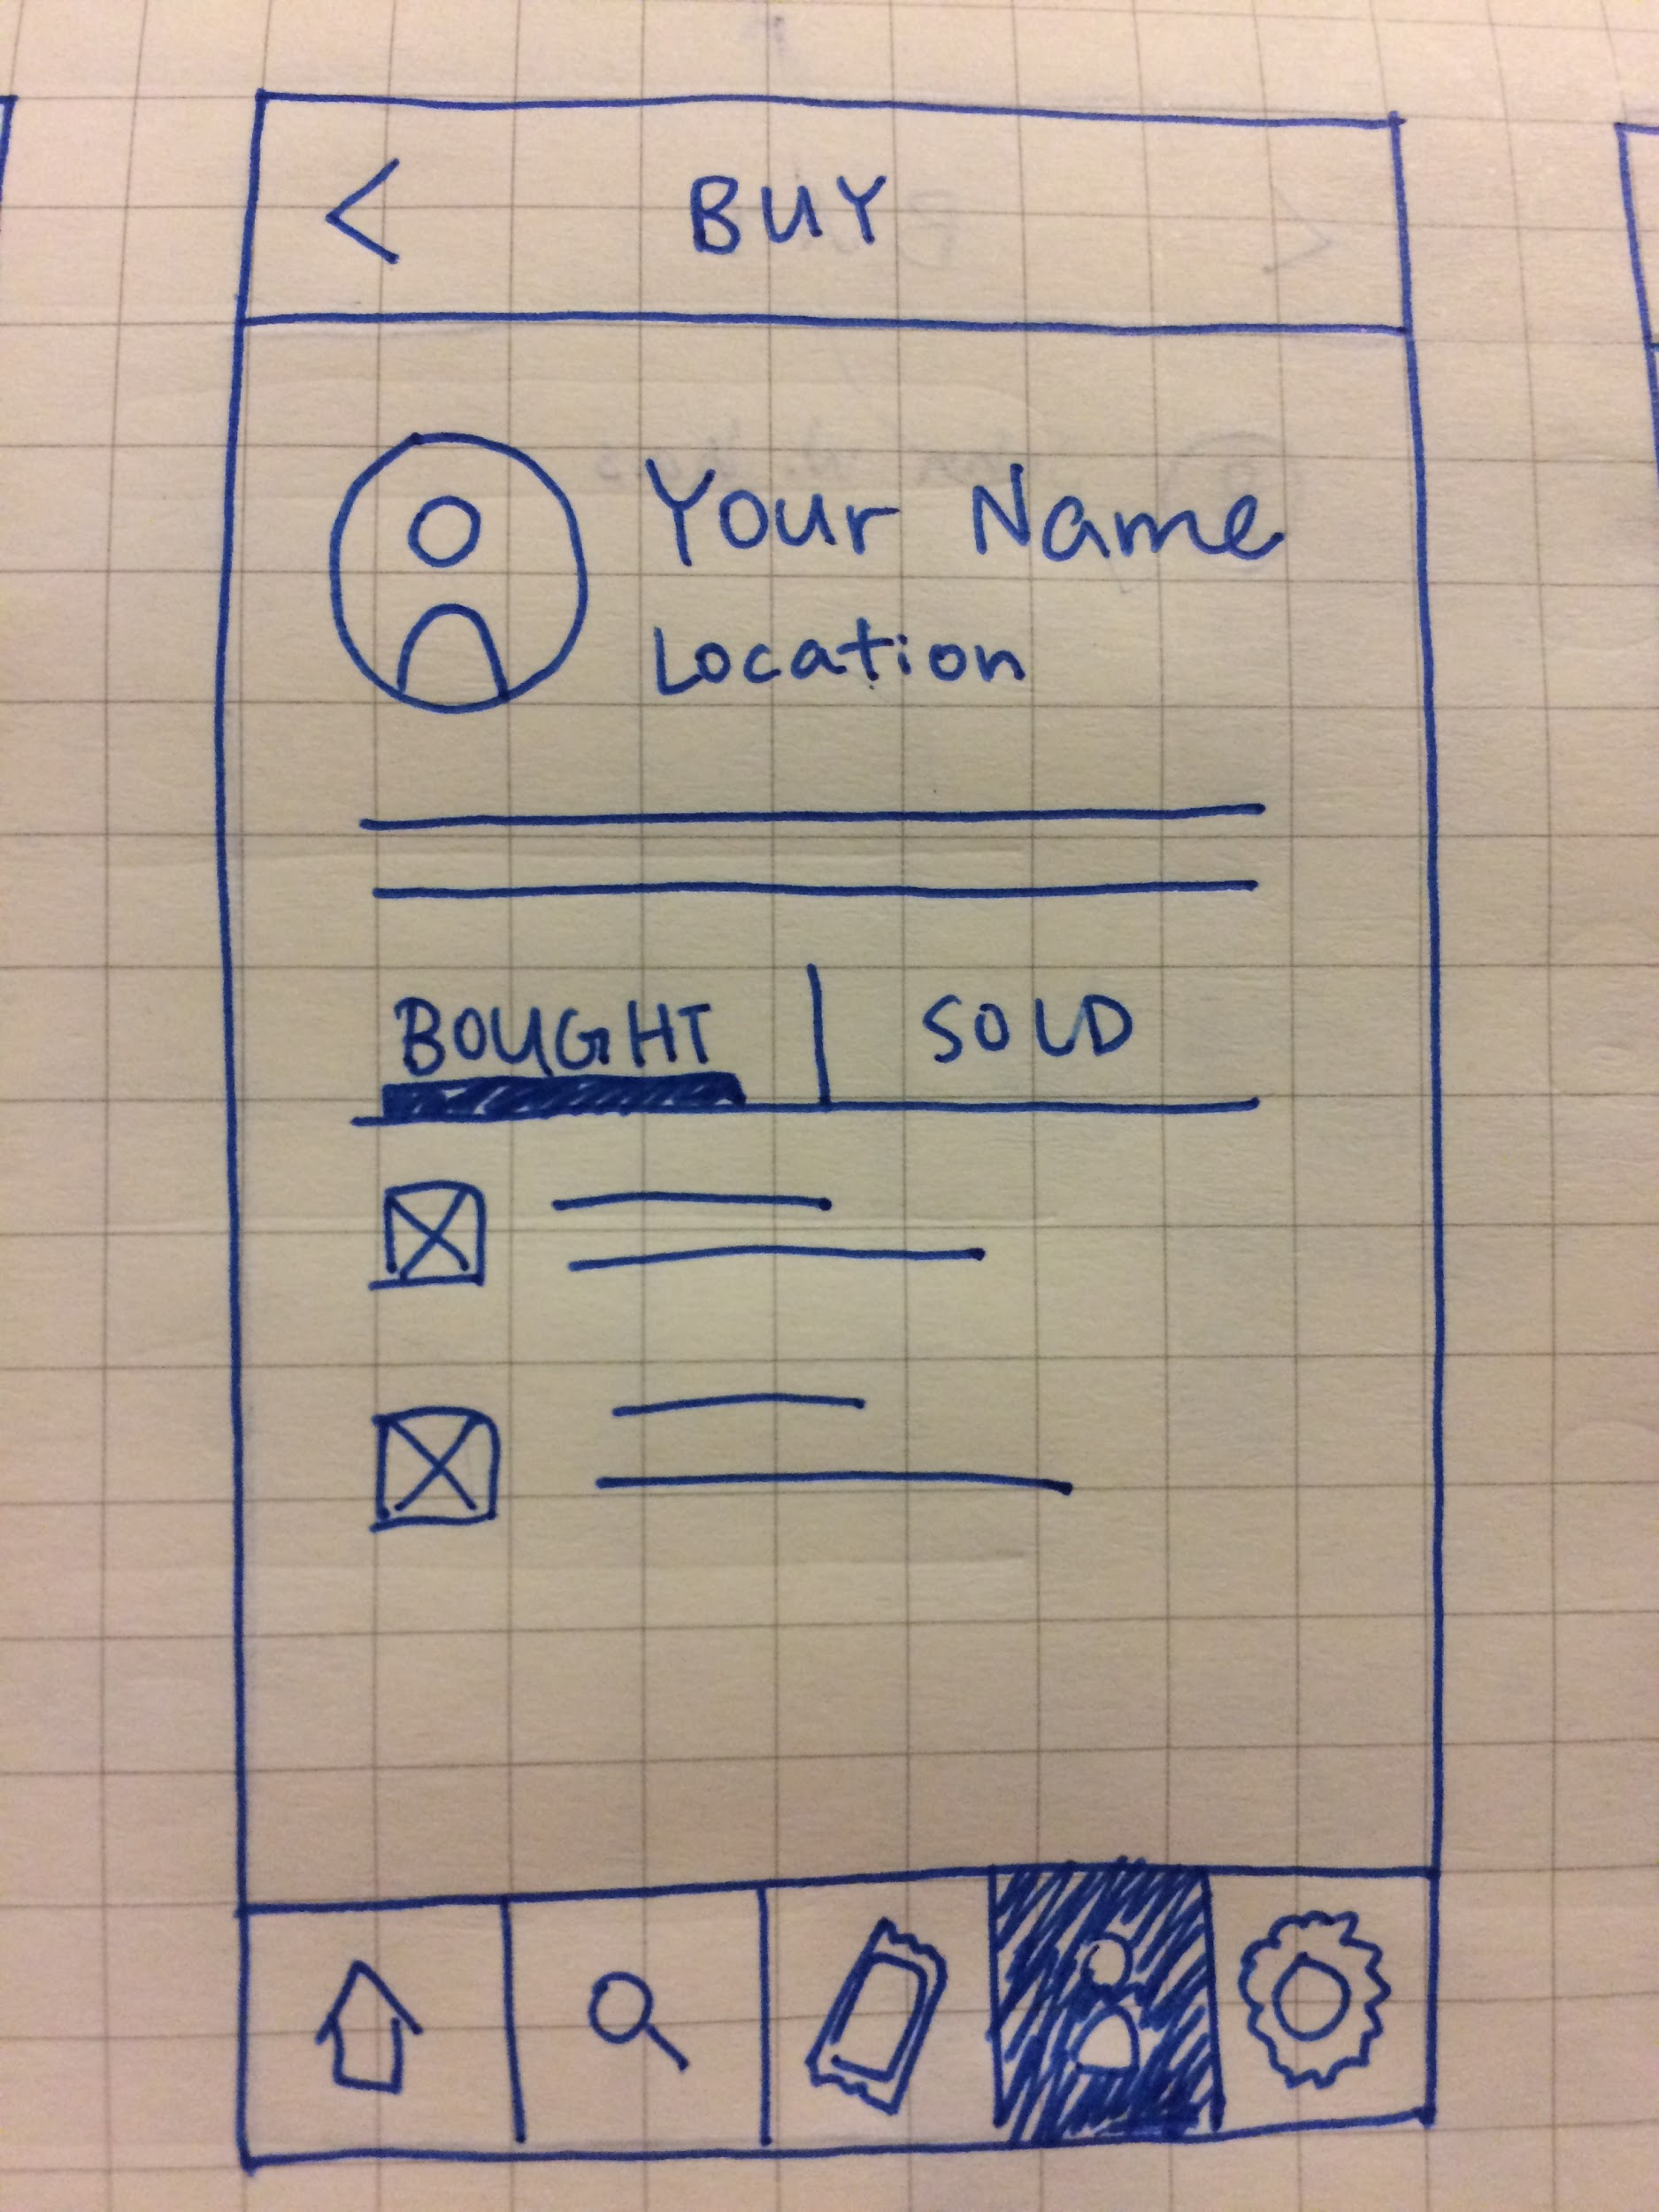 < BUY
Your Name
Location
BOUGHT | SOLD